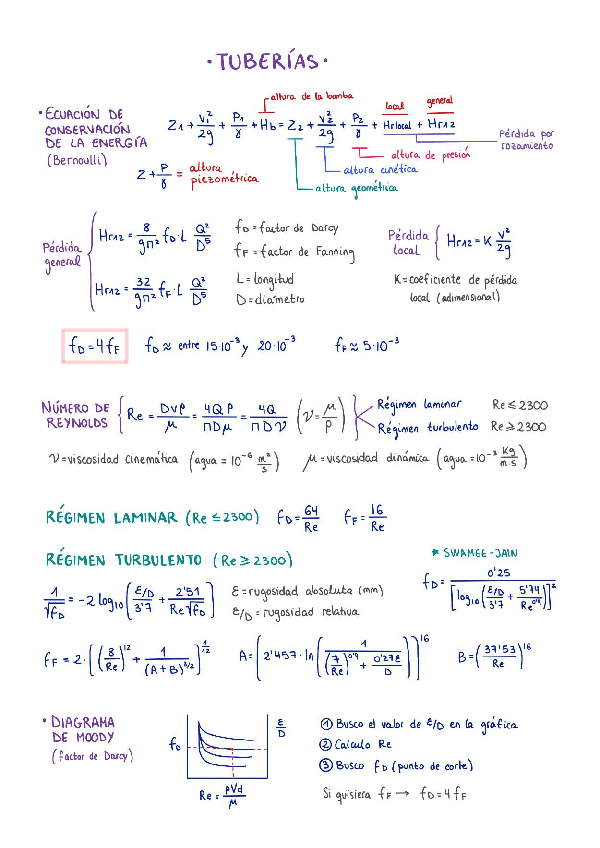 · TUBERÍAS ·
· ECUACIÓN DE CONSERVACIÓN DE LA ENERGÍA (Bernoulli)
altura de la bomba
local general
Z₁ + V₁²/2g + P₁/γ + Hb = Z₂ + V₂²/2g + P₂/γ + Hr local + Hr₁₂
Pérdida por rozamiento
altura de presión
altura cinética
altura geométrica
Z + P/γ = altura piezométrica
Pérdida general
Hr₁₂ = 8/gπ² f_D · L Q²/D⁵
Hr₁₂ = 32/gπ² f_F · L Q²/D⁵
f_D = factor de Darcy
f_F = factor de Fanning
L = longitud
D = diámetro
Pérdida local { Hr₁₂ = K V²/2g
K = coeficiente de pérdida
local (adimensional)
f_D = 4 f_F f_D ≈ entre 15·10⁻³ y 20·10⁻³ f_F ≈ 5·10⁻³
NÚMERO DE REYNOLDS { Re = DVρ/μ = 4Qρ/πDμ = 4Q/πDν (ν = μ/ρ)
Régimen laminar Re ≤ 2300
Régimen turbulento Re ≥ 2300
ν = viscosidad cinemática (agua = 10⁻⁶ m²/s) μ = viscosidad dinámica (agua = 10⁻³ Kg/m·s)
RÉGIMEN LAMINAR (Re ≤ 2300) f_D = 64/Re f_F = 16/Re
RÉGIMEN TURBULENTO (Re ≥ 2300)
* SWAMEE-JAIN
1/√f_D = -2 log₁₀ (ε/D/3'7 + 2'51/Re√f_D)
ε = rugosidad absoluta (mm)
ε/D = rugosidad relativa
f_D = 0'25/[log₁₀(ε/D/3'7 + 5'74/Re^0'9)]²
f_F = 2·[(8/Re)¹² + 1/(A+B)^3/2]^1/12
A = [2'457·ln(1/((7/Re)^0'9 + 0'27ε/D))]¹⁶
B = (37'53/Re)¹⁶
· DIAGRAMA DE MOODY (factor de Darcy)
f_D
ε/D
Re = ρVd/μ
① Busco el valor de ε/D en la gráfica
② Calculo Re
③ Busco f_D (punto de corte)
Si quisiera f_F → f_D = 4 f_F